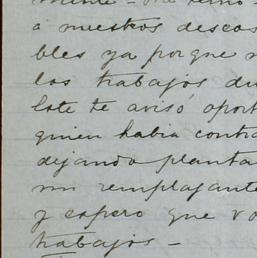 á nuestros deseos
bles ya porque
los trabajos du
Este te avisó oport
quien habia contra
dejando planta
un remplazante
y espero que vo
trabajos —